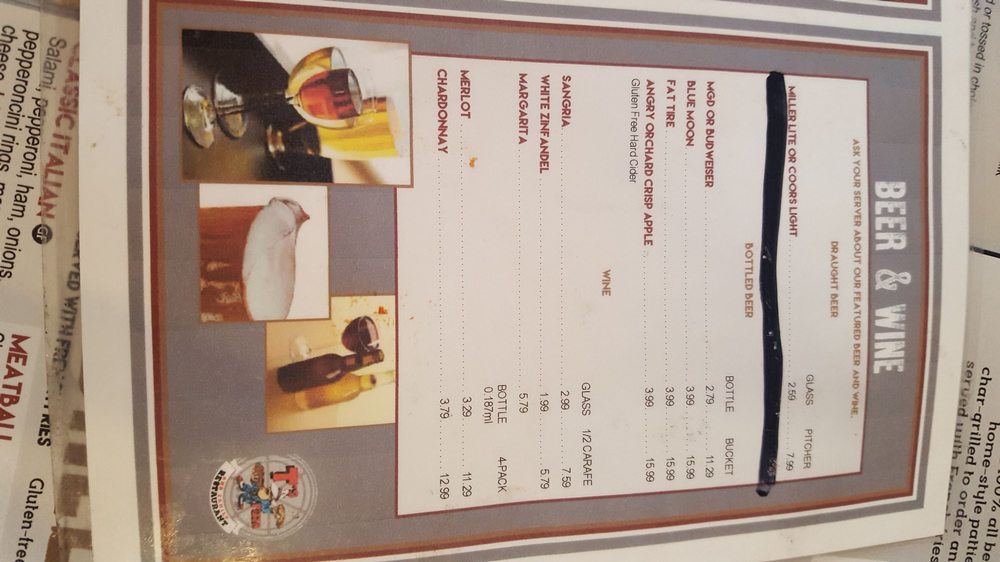 BEER & WINE
ASK YOUR SERVER ABOUT OUR FEATURED BEER AND WINE.
DRAUGHT BEER
GLASS PITCHER
MILLER LITE OR COORS LIGHT 2.59 7.99
BOTTLED BEER
BOTTLE BUCKET
MGD OR BUDWEISER 2.79 11.29
BLUE MOON 3.99 15.99
FAT TIRE 3.99 15.99
ANGRY ORCHARD CRISP APPLE 3.99 15.99
Gluten Free Hard Cider
WINE
GLASS 1/2 CARAFE
SANGRIA 2.99 7.59
WHITE ZINFANDEL 1.99 5.79
MARGARITA 5.79
BOTTLE 4-PACK
0.187ml
MERLOT 3.29 11.29
CHARDONNAY 3.79 12.99
RESTAURANT
CLASSIC ITALIAN GF
Salami, pepperoni, ham, onions,
pepperoncini rings,
cheese
MEATBALL
Gluten-free
home-style pattie
char-grilled to order an
served with
or tossed in